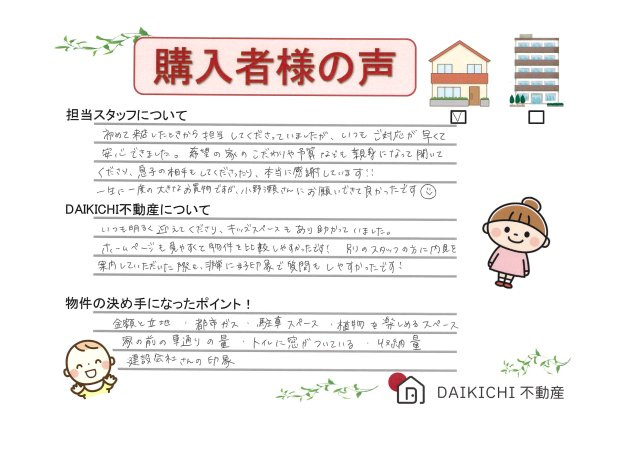 購入者様の声
担当スタッフについて
初めて来店したときから担当してくださっていましたが、いつもご対応が早くて
安心できました。希望の家のこだわりや予算なども親身になって聞いて
くださり、息子の相手もしてくださったり、本当に感謝しています!!
一生に一度の大きなお買物ですが、小野瀬さんにお願いできて良かったです
DAIKICHI不動産について
いつも明るく迎えてくださり、キッズスペースもあり助かっていました。
ホームページも見やすくて物件も比較しやすかったです! 別のスタッフの方に内見を
案内していただいた際も、非常に好印象で質問もしやすかったです!
物件の決め手になったポイント!
金額と立地 ・都市ガス ・駐車スペース ・植物を楽しめるスペース
家の前の車通りの量 ・トイレに窓がついている ・収納量
建設会社さんの印象
DAIKICHI 不動産